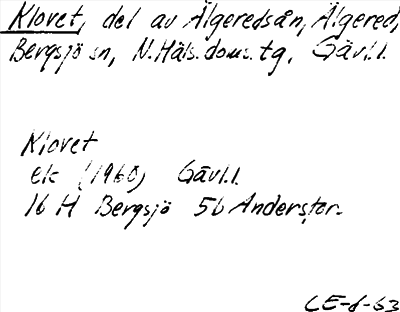 Klovet, del av Älgeredsån, Älgered,
Bergsjö sn, N.Häls. doms.tg, Gävl.l.
Klovet
ek (1960) Gävl.l.
16 H Bergsjö 5b Anderstor-
CE-d-63